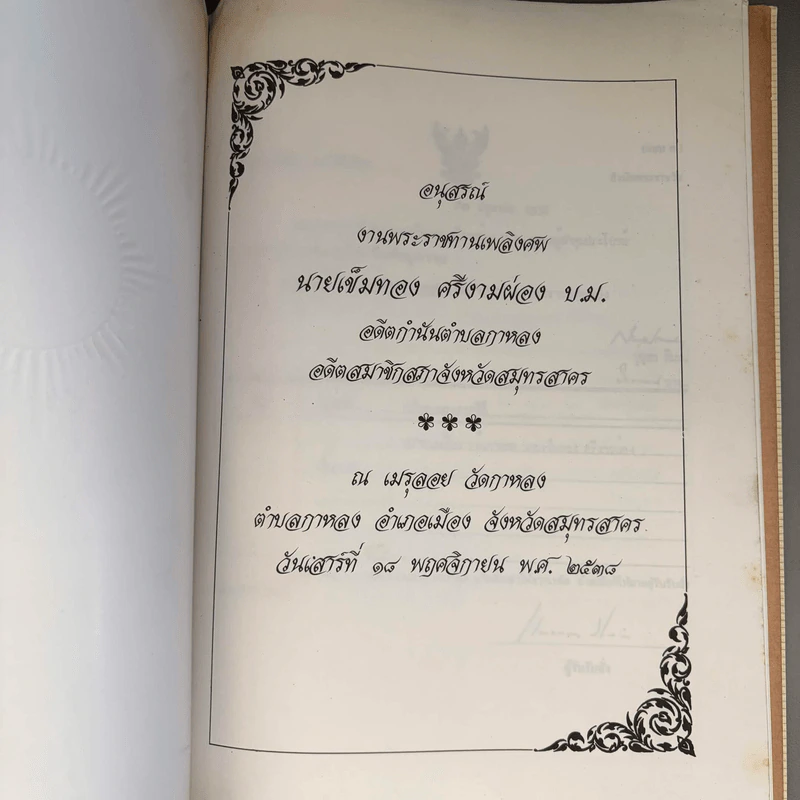 อนุสรณ์
งานพระราชทานเพลิงศพ
นายเข็มทอง ศรีงามผ่อง บ.ม.
อดีตกำนันตำบลกาหลง
อดีตสมาชิกสภาจังหวัดสมุทรสาคร
ณ เมรุลอย วัดกาหลง
ตำบลกาหลง อำเภอเมือง จังหวัดสมุทรสาคร
วันเสาร์ที่ ๑๘ พฤศจิกายน พ.ศ. ๒๕๓๘